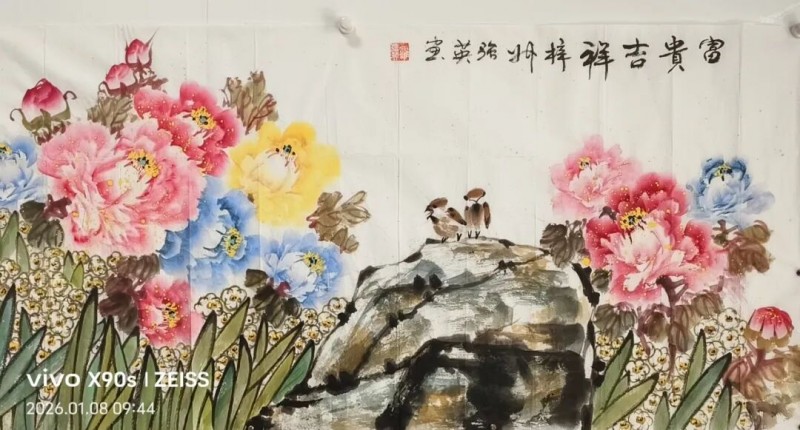 富贵吉祥梓州张英画
vivo X90s | ZEISS
2026.01.08 09:44